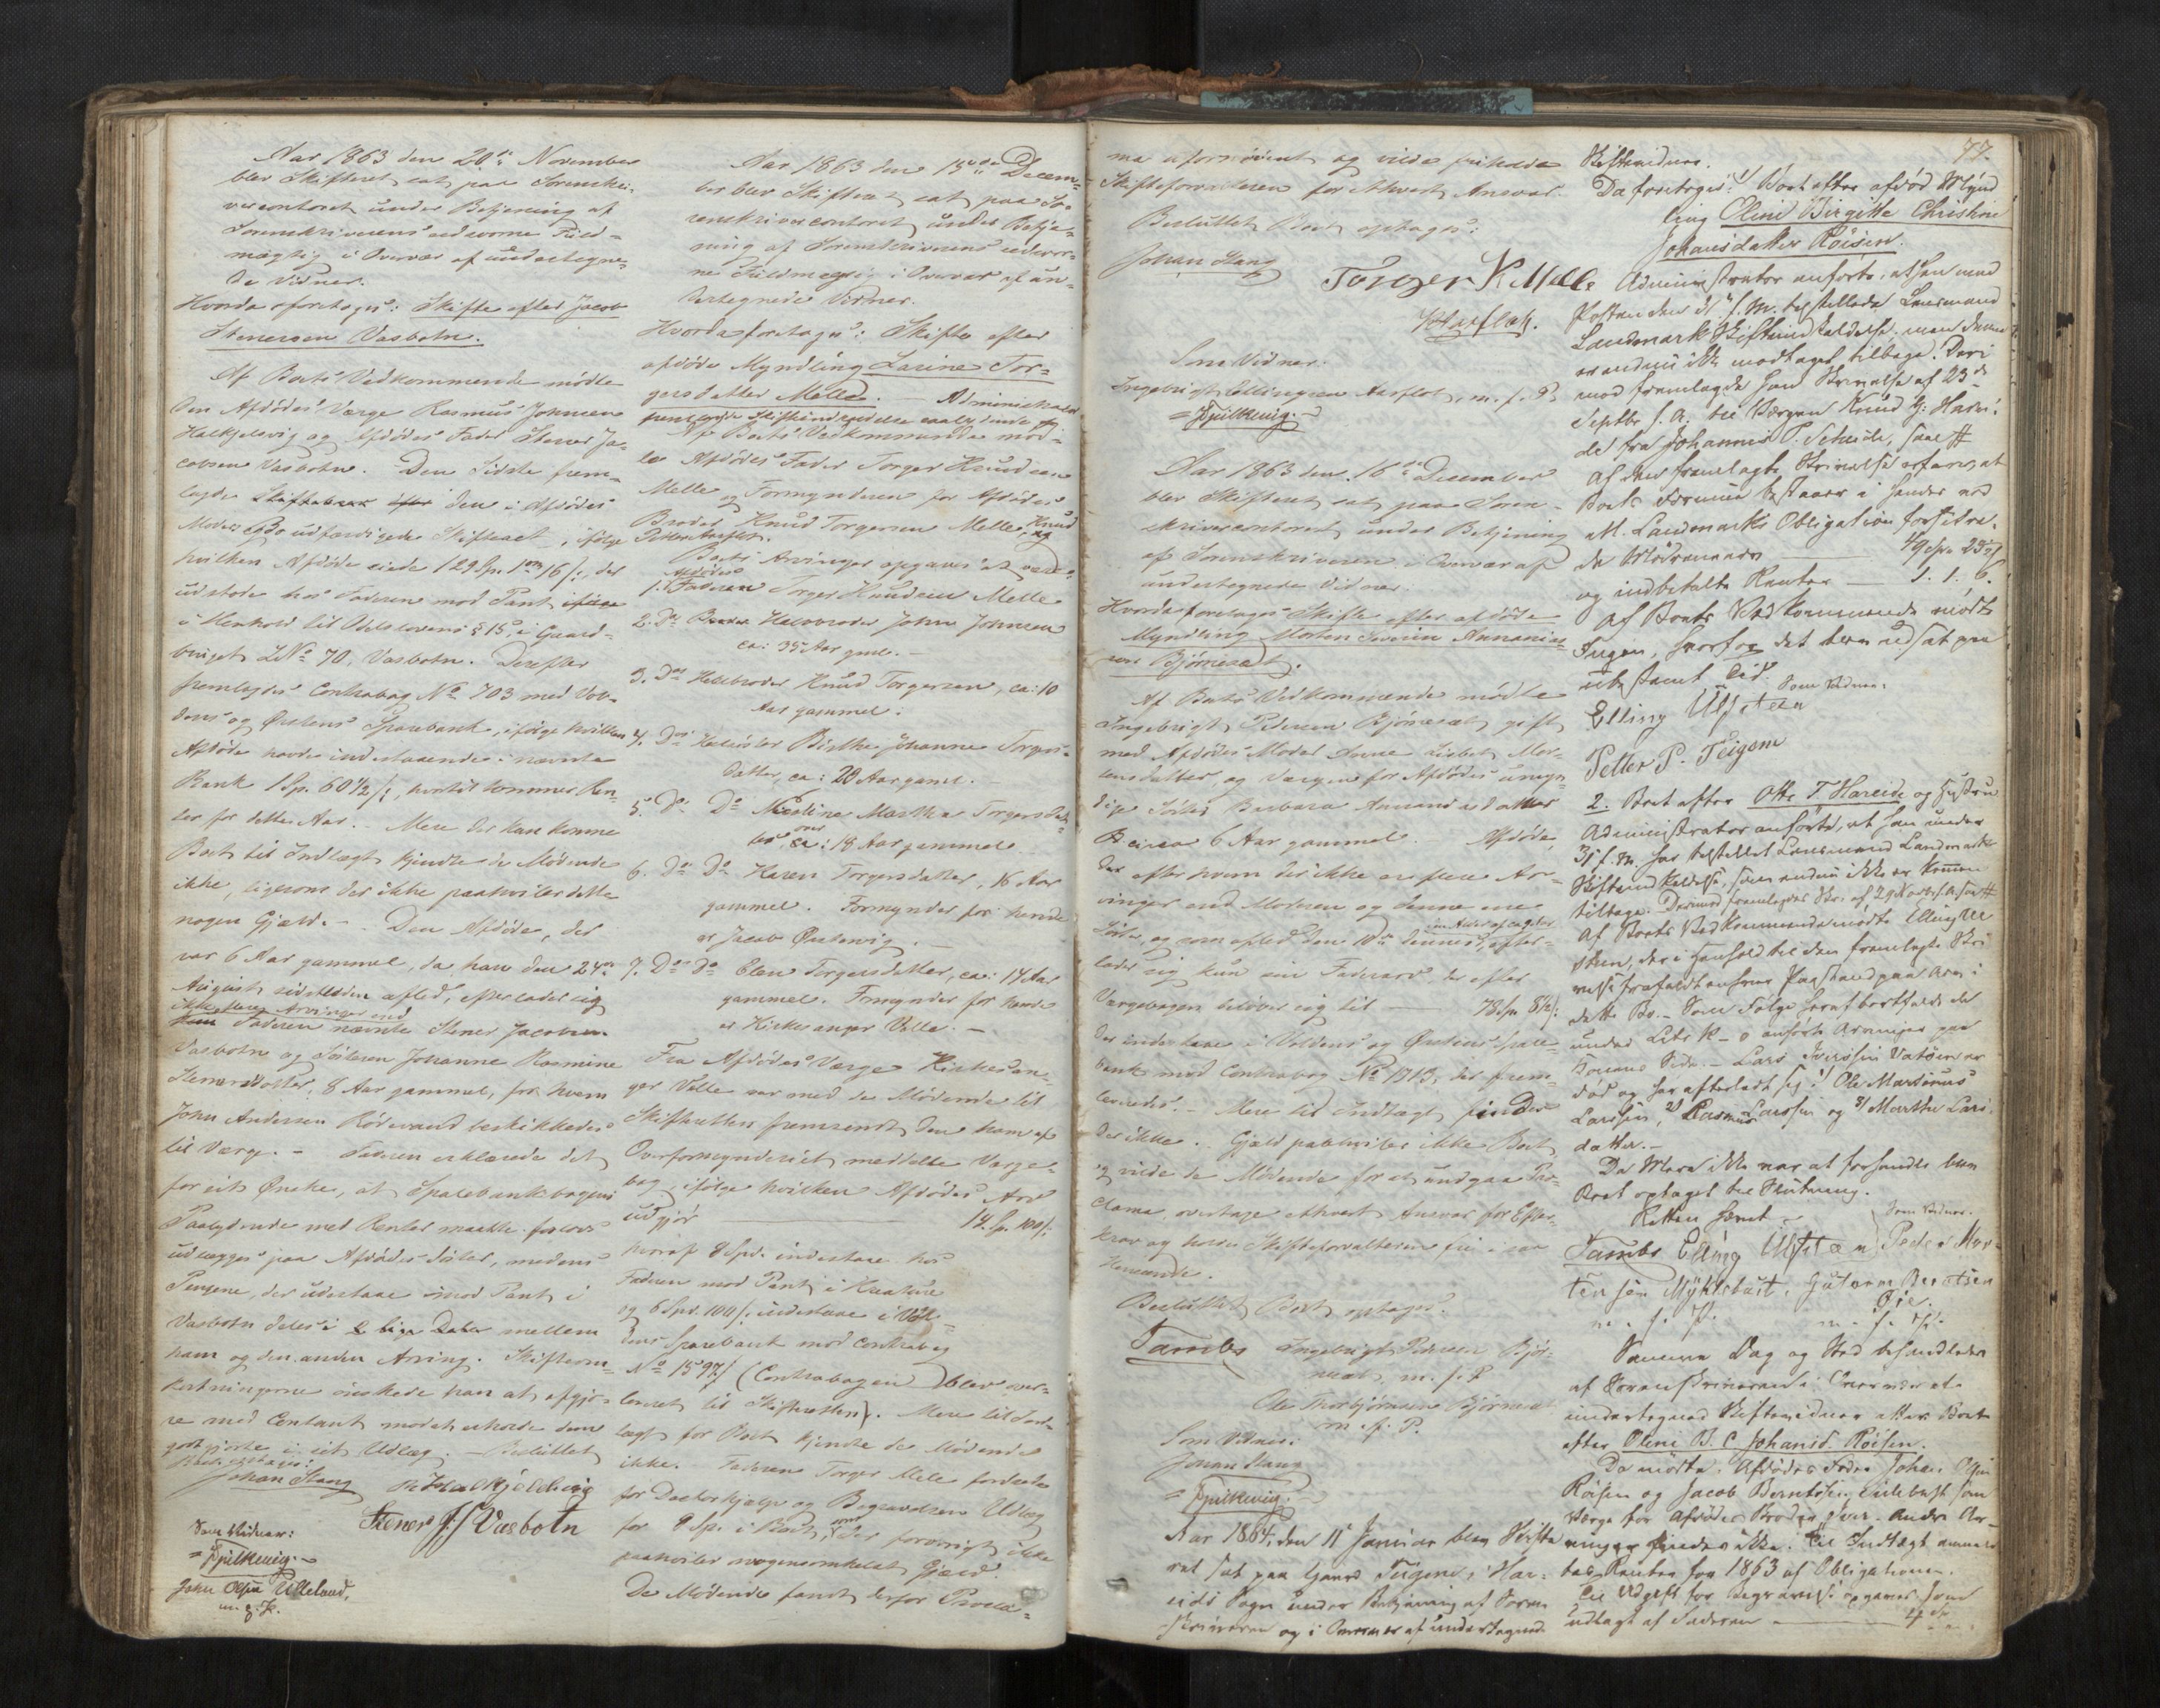 Aar 1863 den 20de November
blev Skifteret sat paa Sorenskri-
vercontoret under Betjening af
Sorenskriverens edsvorne Fuld-
mægtig i Overvær af undertegne-
de Vidner.
Hvorda foretoges: Skifte efter Jacob
Stenersen Vasbotn.
Af Boets Vedkommende mødte
den Afdødes Værge Rasmus Johnsen
Halkjelsvig og Afdødes Fader Stener Ja-
cobsen Vasbotn. Den Sidste frem-
lagde den i Afdødes
Moders Bo udfærdigede Skifteact, ifølge
hvilken Afdøde eiede 129 Sp. 1 ort 16 s, der
udstode hos Faderen mod Pant
i Henhold til Odelslovens § 15, i Gaard-
bruget L.No 70, Vasbotn. Derefter
fremlagdes Contrabog No 703 med Vol-
dens og Ørstens Sparebank, ifølge hvilken
Afdøde havde indestaaende i nævnte
Bank 1 Sp. 60 1/2 s, hvortil kommer Ren-
ter for dette Aar. Mere der kan komme
Boet til Indtægt kjendte de Mødende
ikke, ligesom der ikke paahviler dette
nogen Gjæld. - Den Afdøde, der
var 6 Aar gammel, da han den 24de
August sidstleden afled, efterlader sig
ikke flere Arvinger end
Faderen nævnte Stener Jacobsen
Vasbotn og Søsteren Johanne Rasmine
Stenersdatter, 8 Aar gammel, for hvem
John Andersen Rødsvand beskikkedes
til Værge. - Faderen erklærede det
for sit Ønske, at Sparebankbogens
Paalydende med Renter maatte forlods
udlægges paa Afdødes Søster, medens
Pengene, der udestaae mod Pant i
Vasbotn deles i 2 lige Dele mellem
ham og den anden Arving. Skifteom-
kostningerne ønskede han at afgjø-
re med Contant mod at erholde dem
godtgjorte i sit Udlæg. - Besluttet
Boet optages:
Johan Stang R. J. Halkjelsvig
Stener J. Vasbotn
Som Vidner:
Spilkevig.
John Olsen Ulleland,
m. f. P.
Aar 1863 den 15de Decem-
ber blev Skifteret sat paa So-
renskrivercontoret under Betje-
ning af Sorenskriverens edsvor-
ne Fuldmægtig i Overvær af un-
dertegnede Vidner.
Hvorda foretoges: Skifte efter
afdøde Myndling Larine Tor-
gersdatter Melle. - Administrator
fremlagde Skifteindkaldelse
Af Boets Vedkommende mød-
te Afdødes Fader Torger Knudsen
Melle og Formynderen for Afdødes
Broder Knud Torgersen Melle, Knud
Pettersen Aarflot.
Boets Arvinger opgaves at være:
1. Afdødes Faderen Torger Knudsen Melle
2. Ds Halvbroder John Johnsen
ca: 35 Aar gml. -
3. Ds Helbroder Knud Torgersen, ca: 10
Aar gammel.
4. Ds Helsøster Birthe Johanne Torgers-
datter, ca: 20 Aar gaml.
5. Ds Do Nicoline Martha Torgersdat-
ter, over 18 Aar gammel
6. Ds Do Karen Torgersdatter, 16 Aar
gammel. Formynder for hende
er Jacob Østenvig.
7. Ds Do Elen Torgersdatter, ca: 14 Aar
gammel. Formynder for hende
er Kirkesanger Velle. -
Fra Afdødes Værge Kirkesan-
ger Velle var med de Mødende til
Skifteretten fremsendt den ham af
Overformynderiet meddelte Værge-
bog, ifølge hvilken Afdødes Arv
udgjør 14 Sp. 100 s.
hvoraf 8 Spd. indestaae hos
Faderen mod Pant i Kreature
og 6 Spd. 100 s. indestaae i Vol-
dens Sparebank mod Contrabog
No 1597 (Contrabogen) blev over-
leveret til Skifteretten). Mere til Ind-
tægt for Boet kjendte de Mødende
ikke. Faderen Torger Melle fordrede
for Doctorhjælp og Begravelsen Udlæg
for 8 Sp. i Boet, som der forøvrigt ikke
paahviler nogensomhelst Gjæld.
De Mødende fandt derfor Procla-
ma ufornødent og vilde friholde
Skifteforvalteren for ethvert Ansvar.
Besluttet Boet optages:
Johan Stang
Torger K Melle
K P Aarflot.
Som Vidner:
Ingebrigt Ellingsen Aarflot, m. f. P.
Spilkevig.
Aar 1863 den 16de December
blev Skifteret sat paa Soren-
skrivercontoret under Betjening
af Sorenskriveren i Overvær af
undertegnede Vidner.
Hvorda foretoges Skifte efter afdøde
Myndling Morten Severin Annanias-
sen Bjørneset.
Af Boets Vedkommende mødte
Ingebrigt Pedersen Bjørneset, gift
med Afdødes Moder Anne Lisbet Mor-
tensdatter, og Værgen for Afdødes umyn-
dige Søster Barbara Annaniasdatter
circa 6 Aar gammel. Afdøde,
der efter hvem der ikke ere flere Ar-
vinger end Moderen og denne ene
Søster, og som afled den 10de dennes, efter-
lader sig kun sin Fædrearv, der efter
Værgebogen beløber sig til 78 Sp. 8 1/2 s.
der indestaae i Voldens og Ørstens Spare-
bank mod Contrabog No 1213, der frem-
leveredes. - Mere til Indtægt findes
der ikke. Gjæld paahviler ikke Boet
og vilde de Mødende for at undgaae Pro-
clama, overtage ethvert Ansvar for Efter-
krav og holde Skifteforvalteren fri i saa
Henseende.
Besluttet Boet optages.
Tambs Ingebrigt Pedersen Bjør-
neset, m. f. P
Ole Thorbjørnsen Bjørneset
m. f. P.
Som Vidner:
Johan Stang
Spilkevig.
Aar 1864, den 11 Januar blev Skifte
ret sat paa Gaard Teigene i Har-
eids Sogn under Betjening af Soren
skriveren og i Overvær af undertegnede
77.
Skiftevidner.
Da foretoges: 1) Boet efter afdød Mynd
ling Oline Birgitte Christine
Johansdatter Röisen.
Administrator anførte, at han med
Posten den f. M. bestillede Lensmand
Landmark Skifteindkaldelse, men denne
er endnu ikke modtaget tilbage. Deri
mod fremlagde han Skrivelse af 23de
Septbr f. A. til Værgen Knud G. Harei-
de fra Johannes P. Scheide, saa #
Af den fremlagte Skrivelse erfares, at
Boets Formue bestaaer i hendes ved
Mt. Landmarks Obligation forsikre-
de Mødrenearv 49 Spd 23 s
og indbetalte Renter 1. 1. 6.
Af Boets Vedkommende mødte
Ingen, hvorfor det blev udsat paa
ubestemt Tid. Som Vidner:
Elling Ulfsten
Petter P. Teigene
2. Boet efter Otte T. Hareide og Hustru
Administrator anførte, at han under
31 f. M. har bestillet Lensmand Landmarks
Skifteindkaldelse, som endnu ikke er kommen
tilbage. Derimod fremlagdes Skr. af 29 Novbr f. A. #
Af Boets Vedkommende mødte Elling Ulf
sten, der i Henhold til den fremlagte Skri
velse frafaldt enhver Paastand paa Arv i
dette Bo. - Som Følge heraf bortfalde de
under Litr. K - o anførte Arvinger paa
Konens Side. - Lars Iversen Vatöen er
død og har efterladt sig: 1) Ole Martinus
Larssen, 2) Rasmus Larssen og 3) Marthe Lars
datter. -
Da Mere ikke var at forhandle blev
Boet optaget til Slutning.
Retten hævet. Som Vidner.
Tambs Elling Ulfsten Peder Mor-
tensen Myklebust, Gulvern Berntsen
Öie.
m. f. P. m. f. P.
Samme Dag og Sted behandledes
af Sorenskriveren i Overvær af
undertegnede Skiftevidner atter Boet
efter Oline B. C Johansd. Röisen.
Da mødte: Afdødes Fader Johan Olsen
Röisen og Jacob Berntssen Eidebust som
Værge for Afdødes Broder Iver. Andre Ar-
vinger findes ikke. Til Indtægt anmeld
tes Renter for 1863 af Obligationen.
Til Udgift for Begravelse opgaves som
udlagt af Faderen 4 Sp